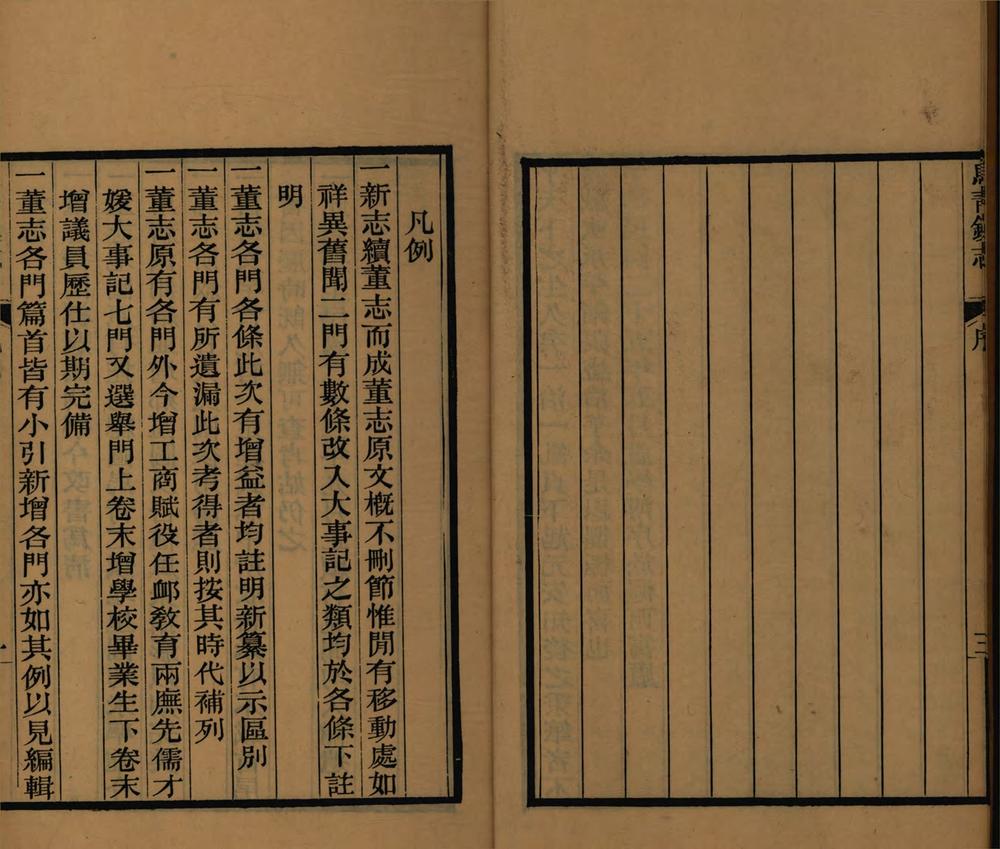 烏青鎮志
序
三
凡例
一新志續董志而成董志原文概不刪節惟閒有移動處如
祥異舊聞二門有數條改入大事記之類均於各條下註
明
一董志各門各條此次有增益者均註明新纂以示區別
一董志各門有所遺漏此次考得者則按其時代補列
一董志原有各門外今增工商賦役任卹敎育兩廡先儒才
媛大事記七門又選舉門上卷末增學校畢業生下卷末
增議員歷仕以期完備
一董志各門篇首皆有小引新增各門亦如其例以見編輯